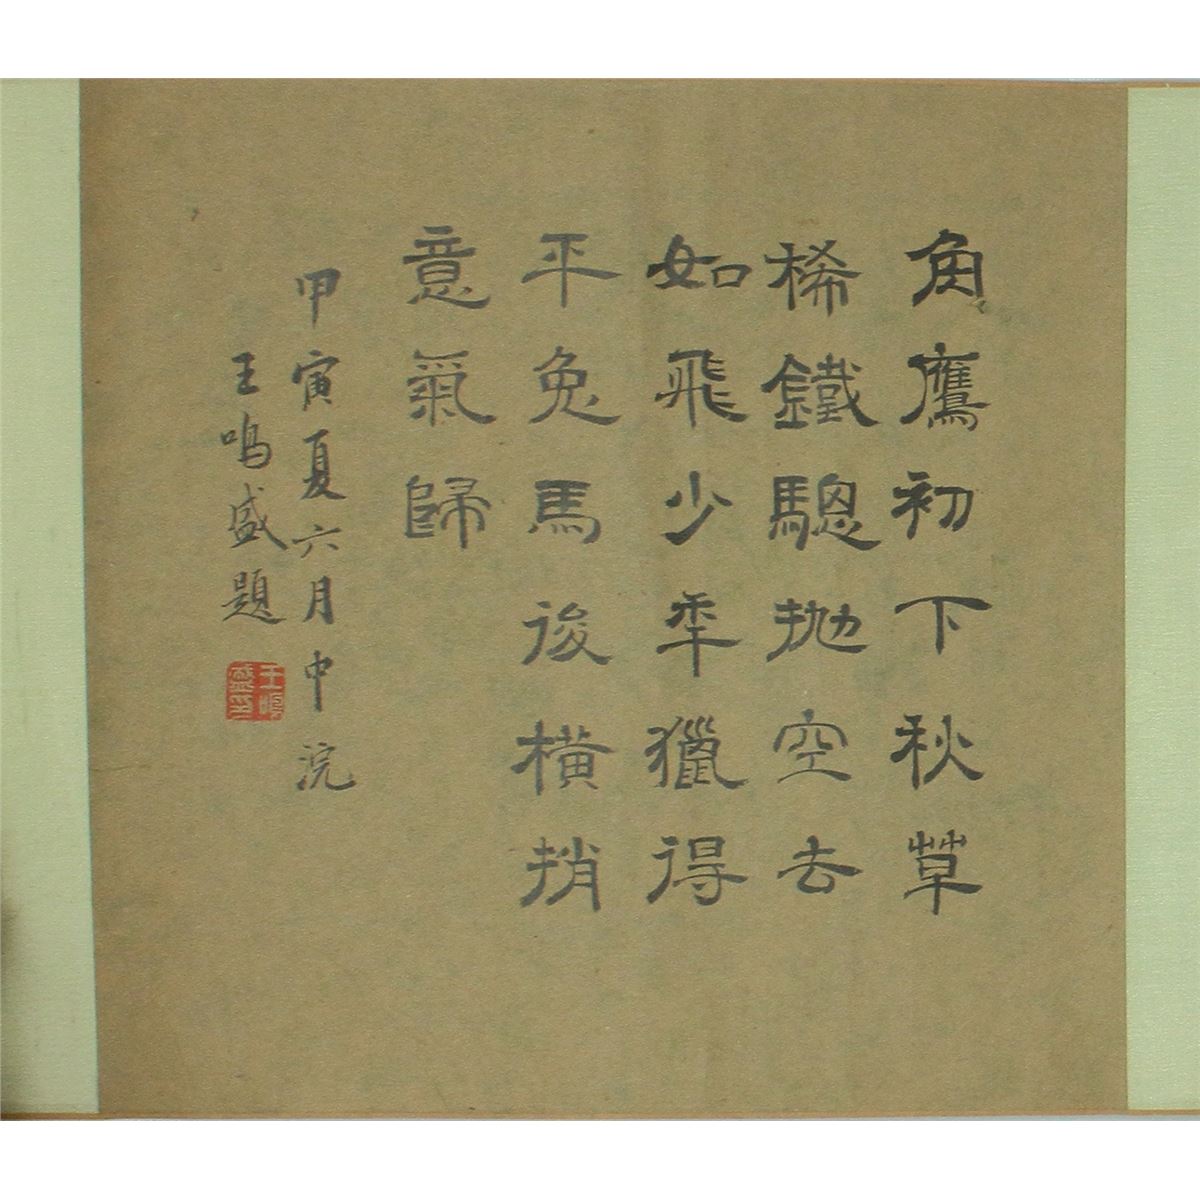 角鷹初下秋草
稀鐵驄抛空去
如飛少年獵得
平兔馬後橫捎
意氣歸
甲寅夏六月中浣
王鳴盛題
王鳴盛印